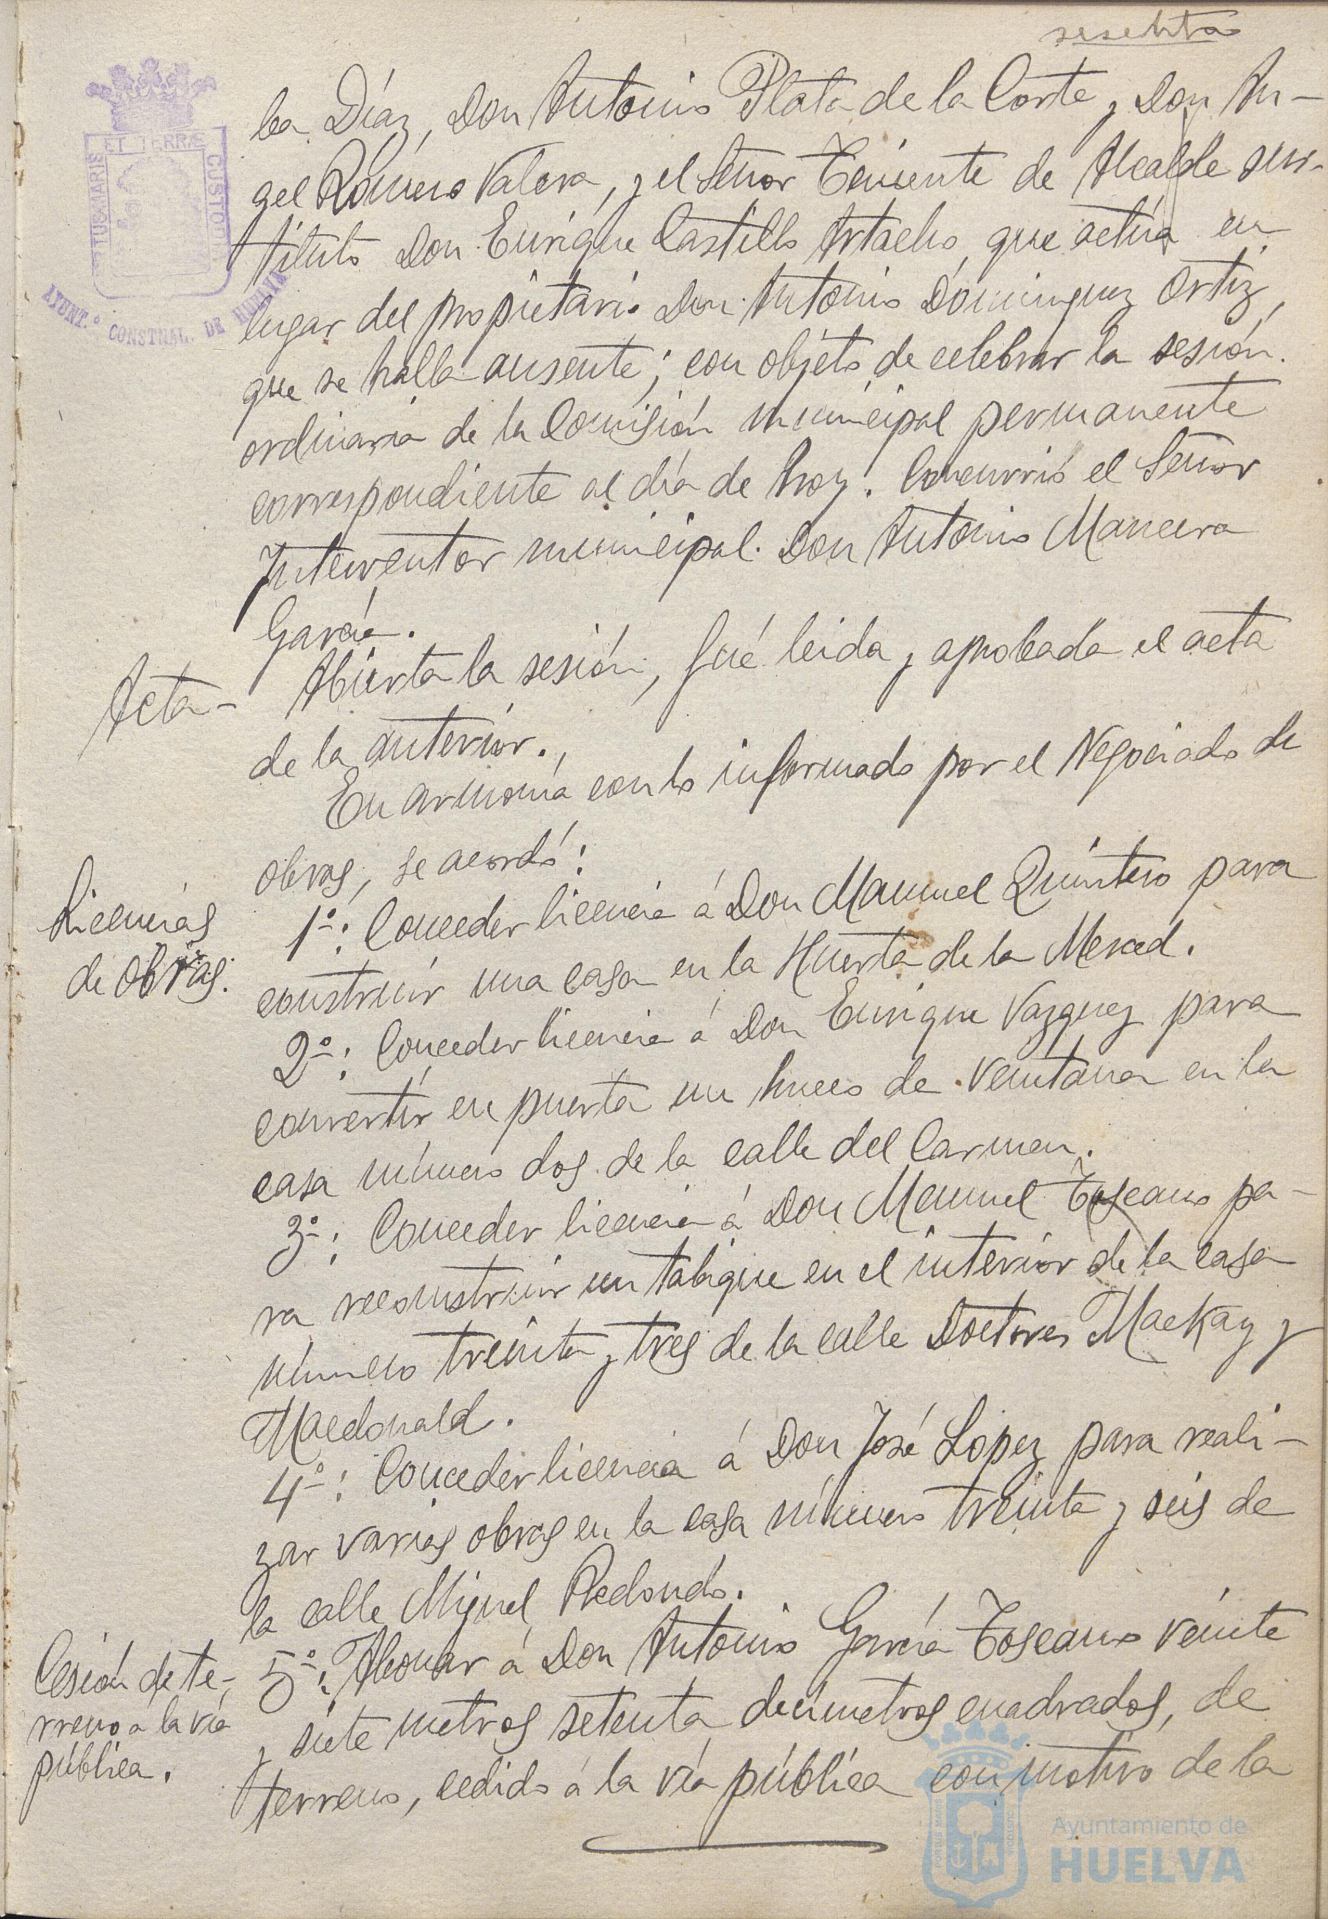 sesenta
ba Díaz, Don Antonio Plata de la Corte y Don An-
gel Romero Valera, y el Señor Teniente de Alcalde sus-
tituto Don Enrique Castillo Artacho, que actúa en
lugar del propietario Don Antonio Dominguez Ortiz,
que se halla ausente; con objeto de celebrar la sesión
ordinaria de la Comisión municipal permanente
correspondiente al día de hoy. Concurrió el Señor
Interventor municipal Don Antonio Mancera
García.
Acta- Abierta la sesión, fué leida y aprobada el acta
de la anterior.
En armonía con lo informado por el Negociado de
obras, se acordó:
Licencias
de obras.
1º: Conceder licencia á Don Manuel Quintero para
construir una casa en la Huerta de la Merced.
2º: Conceder licencia á Don Enrique Vazquez para
convertir en puerta un hueco de ventana en la
casa número dos de la calle del Carmen.
3º: Conceder licencia á Don Manuel Toscano pa-
ra reconstruir un tabique en el interior de la casa
número treinta y tres de la calle Doctores Mackay y
Macdonald.
4º: Conceder licencia á Don José Lopez para reali-
zar varias obras en la casa número treinta y seis de
la calle Miguel Redondo.
Cesión de te-
rreno a la vía
pública.
5º: Abonar á Don Antonio García Toscano veinte
y siete metros setenta decímetros cuadrados, de
terreno, cedido á la vía pública con motivo de la
ET TERRÆ
PORTUS MARIS
CUSTODIA
AYUNT.º CONSTNAL. DE HUELVA
Ayuntamiento de
HUELVA